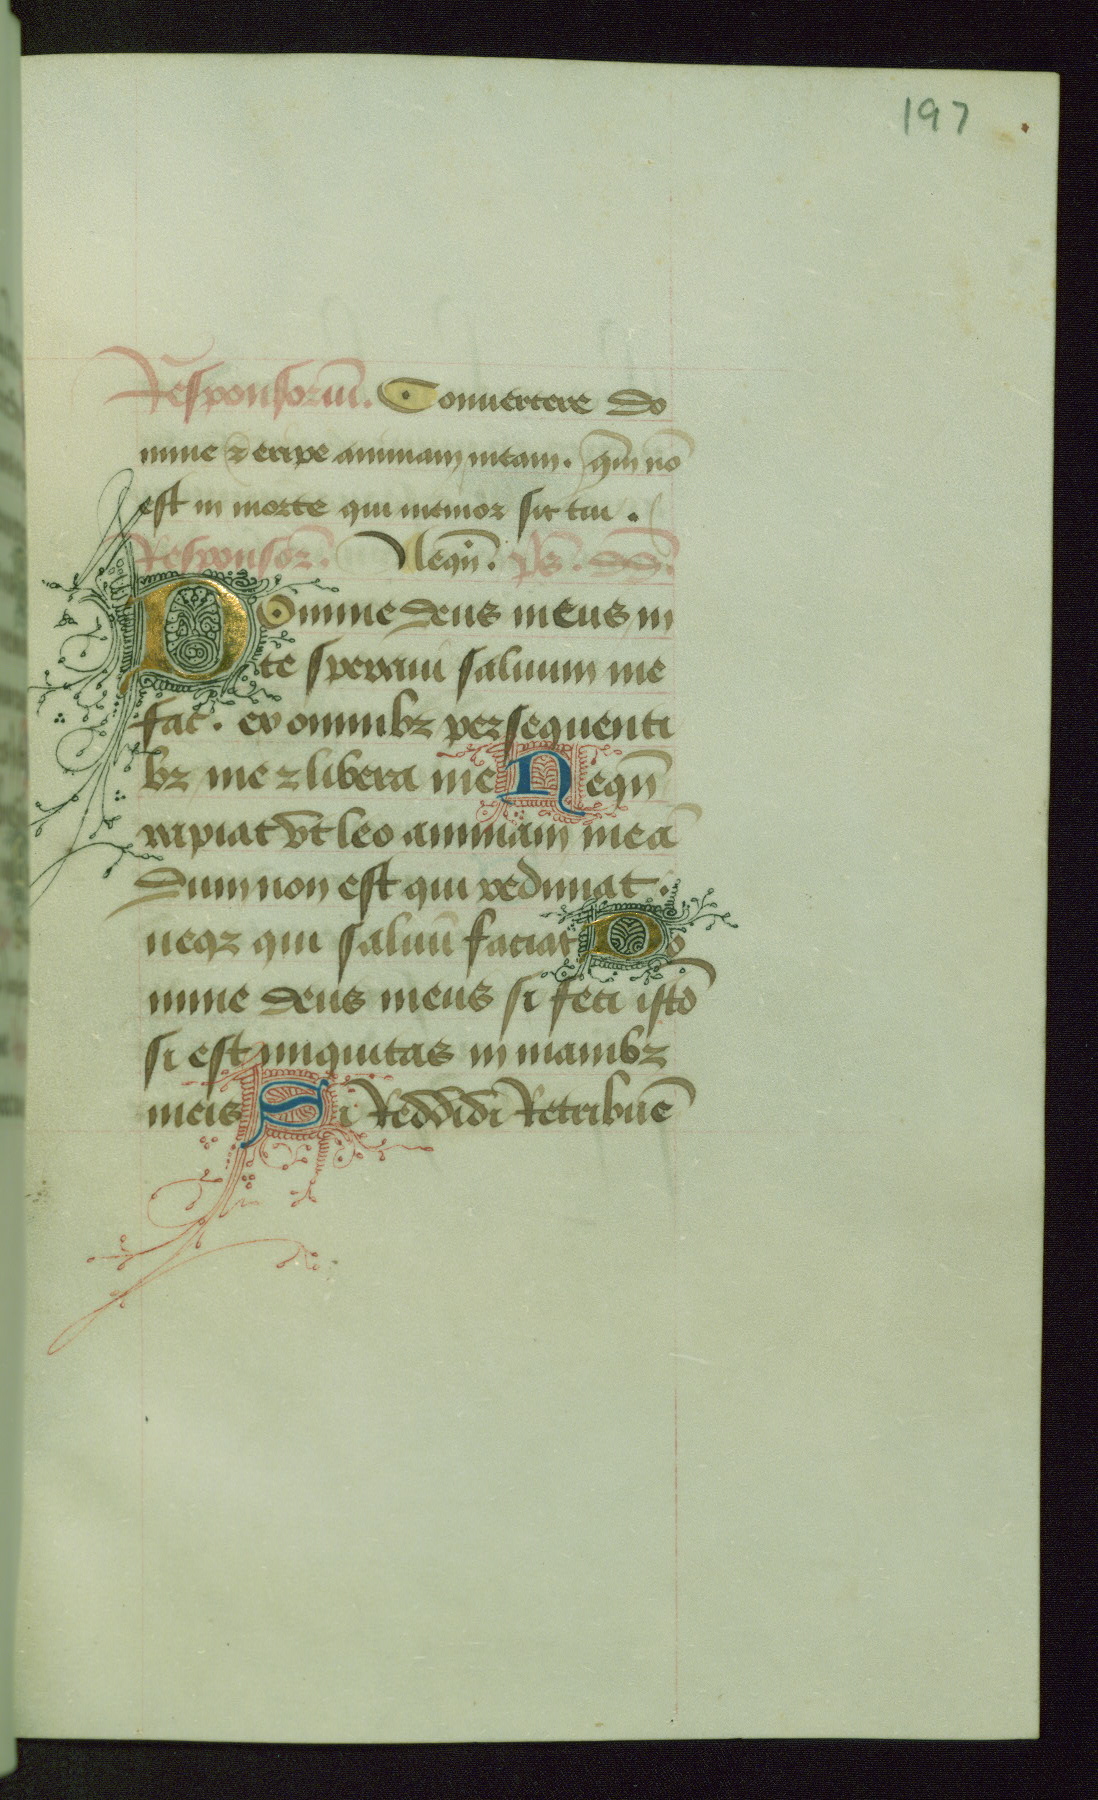 197
Responsoriū. Conuertere do
mine ⁊ eripe animam meam. qm̄ nō
est in morte qui memor sit tui.
Responsor̄. Nequn̄. ps̄. dd̄.
Domine deus meus in
te speraui saluum me
fac. ex omnibꝫ persequenti
bꝫ me ⁊ libera me Nequn̄
rapiat vt leo animam meā
Dum non est qui redimat.
neqꝫ qui saluū faciat Do
mine deus meus si feci istō
si est iniquitas in manibꝫ
meis Si Reddidi Retribuē